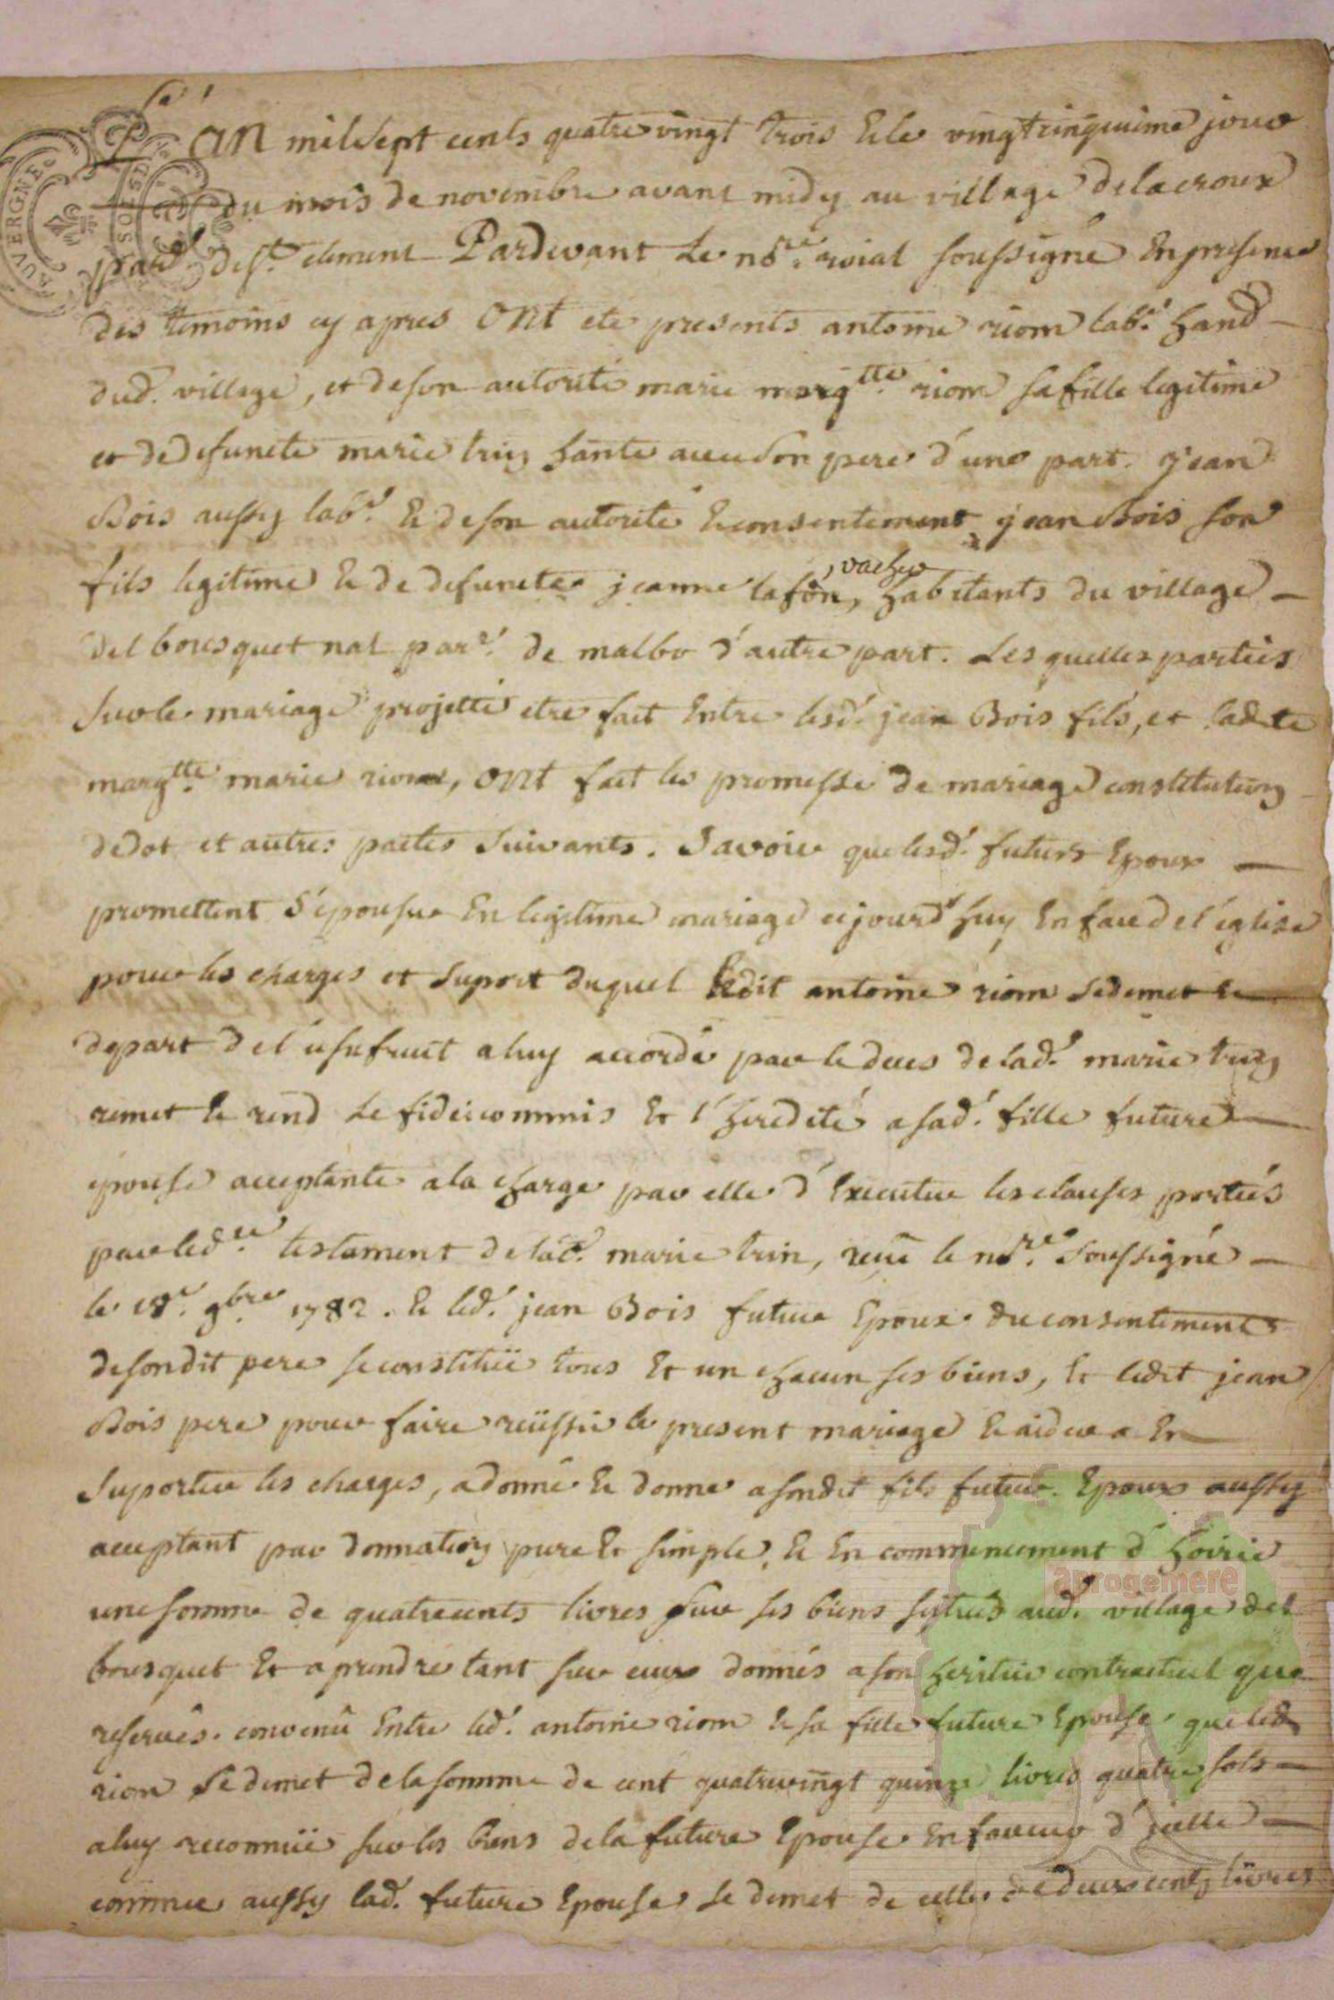 L'an mil sept cents quatre vingt trois & le vingtcinquieme jour
du mois de novembre avant midy au village delacroux
parr.e de St. clement Pardevant Le nore. roial soussigné En presence
des temoins cy apres ONt eté presents antoine riom labr. hand
dud. village, et deson autorité marie margtte. riom sa fille legitime
et de defuncte marie trin hante avec son pere d'une part. jean
Bois aussy labr. & de son autorité & consentement jean Bois son
vacher
fils legitime & de defuncte jeanne lafon, habitants du village
del bousquet nat parr. de malbo d'autre part. Lesquelles parties
sur le mariage projetté etre fait Entre lesd. jean Bois fils, et ladte
margtte. marie riom, ONt fait les promesse de mariage constitution
dedot et autres pactes suivants. Savoir que lesd. futurs Epoux
promettent s'epouser En legitime mariage cejourd'huy En face de l'église
pour les charges et suport duquel ledit antoine riom se demet &
depart de l'usufruit a luy accordé par le deces de lad. marie trin
remet & rend Le fideicommis Et l'heredité a sad. fille future
epouse acceptante a la charge par elle d'Executer les clauses portées
par led. testament de lad. marie trin, reçu le nore. soussigné
le 18e. 9bre 1782. & led. jean Bois futur Epoux du consentement
desondit pere se constitüe tous Et un chacun ses biens, Et ledit jean
Bois pere pour faire reüssir le present mariage & aider a En
suporter les charges, a donné & donne a sondit fils futur Epoux aussy
acceptant par donnation pure Et simple, & En commencement d'hoirie
une somme de quatrecents livres sur ses biens scitués aud. village del
bousquet Et a prendre tant sur ceux donnés a son heritier contractuel que
reservés. convenû Entre led. antoine riom & sa fille future Epouse que led.
riom se demet de la somme de cent quatrevingt quinze livres quatre sols
a luy reconnüe sur les biens de la future Epouse En faveur d'icelle
comme aussy lad. future Epouse se demet de celle de deux cents livres
AUVERGNE
aprogemere